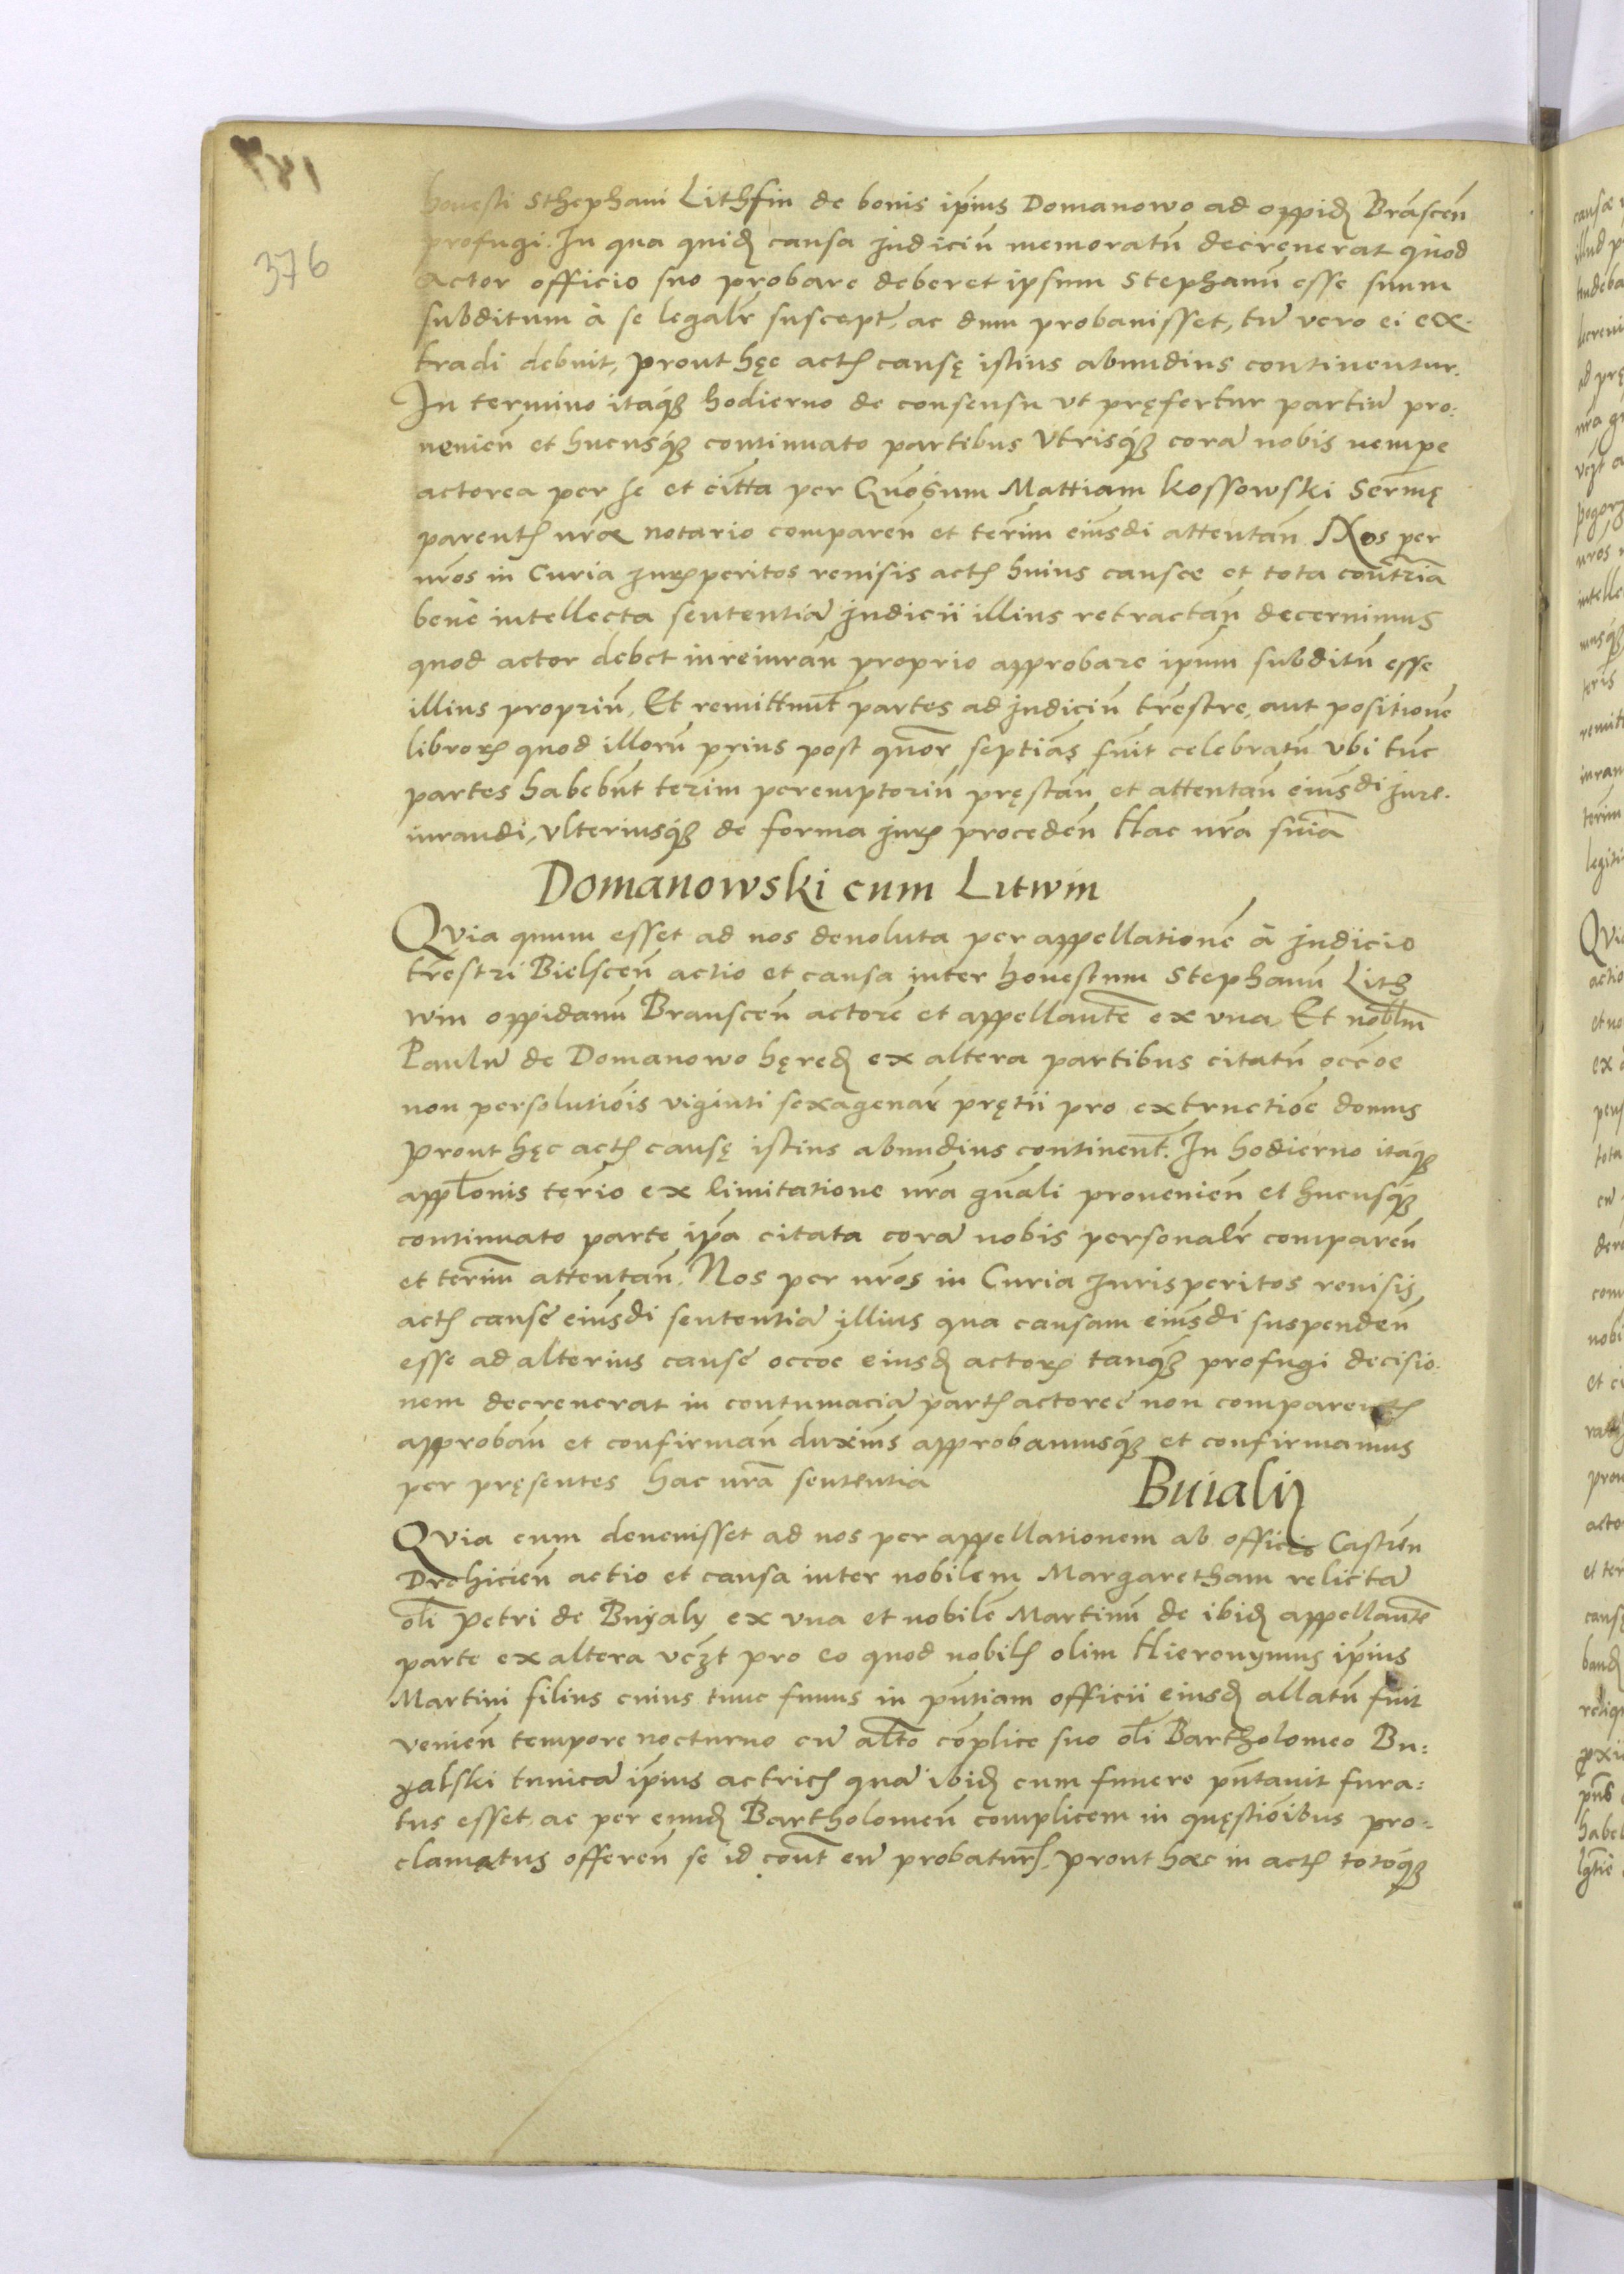 376
honesti Sthephani Lithfin de bonis ip̄ius Domanowo ad oppid̨ Brāscen̄
profugi. In qua quid̨ causa judiciū memoratū decreuerat quod
Actor officio suo probare deberet ipsum Stephanū esse suum
subditum à se legalr̄ suscept̄, ac dum probauisset, tū vero ei ex-
tradi debuit, prout hęc actꝭ causę istius abundius continentur.
In termino itaq́ꝫ hodierno de consensu vt pręfertur partiū pro:
uenien̄ et hucusq́ꝫ continuato partibus Vtrisq́ꝫ corā nobis nempe
actorea per se et citta per Gnosum Mattiam Kossowski Sermę
parentꝭ nrāe notario comparen̄ et term̄ eiusdi attentan̄ Nos per
nrōs in Curia Jurꝭperitos reuisis actꝭ huius causæ et tota contr̄ia
bene intellecta sententiā judicii illius retractan̄ decernimus
quod actor debet iureiuran̄ proprio approbare ip̄um subditū esse
illius propriū, Et remittmūt partes ad judiciū trēstre, aut positionē
librorꝝ quod illorū prius post quor septiās fuit celebratū vbi tūc
partes habebūt term̄ peremptoriū pręstan̄ et attentan̄ eiusdi jure-
iurandi, vlteriusq́ꝫ de forma jurꝭ proceden̄ Hac nrā snīa
Domanowski cum Litwin
Qvia quum esset ad nos deuoluta per appellationē à judicio
trēstri Bielscen̄ actio et causa inter honestum Stephanū Lith
win oppidanū Branscen̄ actorē et appellantē ex vna, Et nobl̄m
Paulū de Domanowo hęred̨ ex altera partibus citatū occōe
non persolutiōis viginti sexagenar̄ prętii pro extructiōe domus
prout hęc actꝭ causę istius abundius continent̄. In hodierno itaq́ꝫ
appl̄onis term̄io ex limitatione nrā gnāli prouenien̄ et hucusq́ꝫ
continuato parte ip̄a citata corā nobis personalr̄ comparen̄
et term̄ attentan̄. Nos per nrōs in Curia Jurisperitos reuisis
actꝭ causę eiusdi sententiā illius qua causam eiusdi suspenden̄
esse ad alterius causę occōe eiusd̨ actorꝭ tanq́ꝫ profugi decisio:
nem decreuerat in contumaciā partꝭ actoreę non comparentꝭ
approban̄ et confirman̄ duximꝰ approbamusq́ꝫ et confirmamus
per pręsentes hac nrā sententia
Buialÿ
Qvia cum deuenisset ad nos per appellationem ab officio Castrēn
Drohicien̄ actio et causa inter nobilem Margaretham relictā
oli Petri de Buÿalÿ ex vna et nobilē Martinū de ibid̨ appellantē
parte ex altera vczt pro eo quod nobilꝭ olim Hieronymus ip̄ius
Martini filius cuius tunc funus in pn̄tiam officii eiusd̨ allatū fuit
venien̄ tempore nocturno cū alt̄o cōplice suo oli Bartholomeo Bu:
yalski tunicā ip̄ius actricꝭ quā ibid̨ cum funere pn̄tauit fura:
tus esset, ac per eund̨ Bartholomeū complicem in quęstiōibus pro:
clamatus offeren̄ se id cont̄ eū probaturꝭ, prout hæc in actꝭ totoq́ꝫ